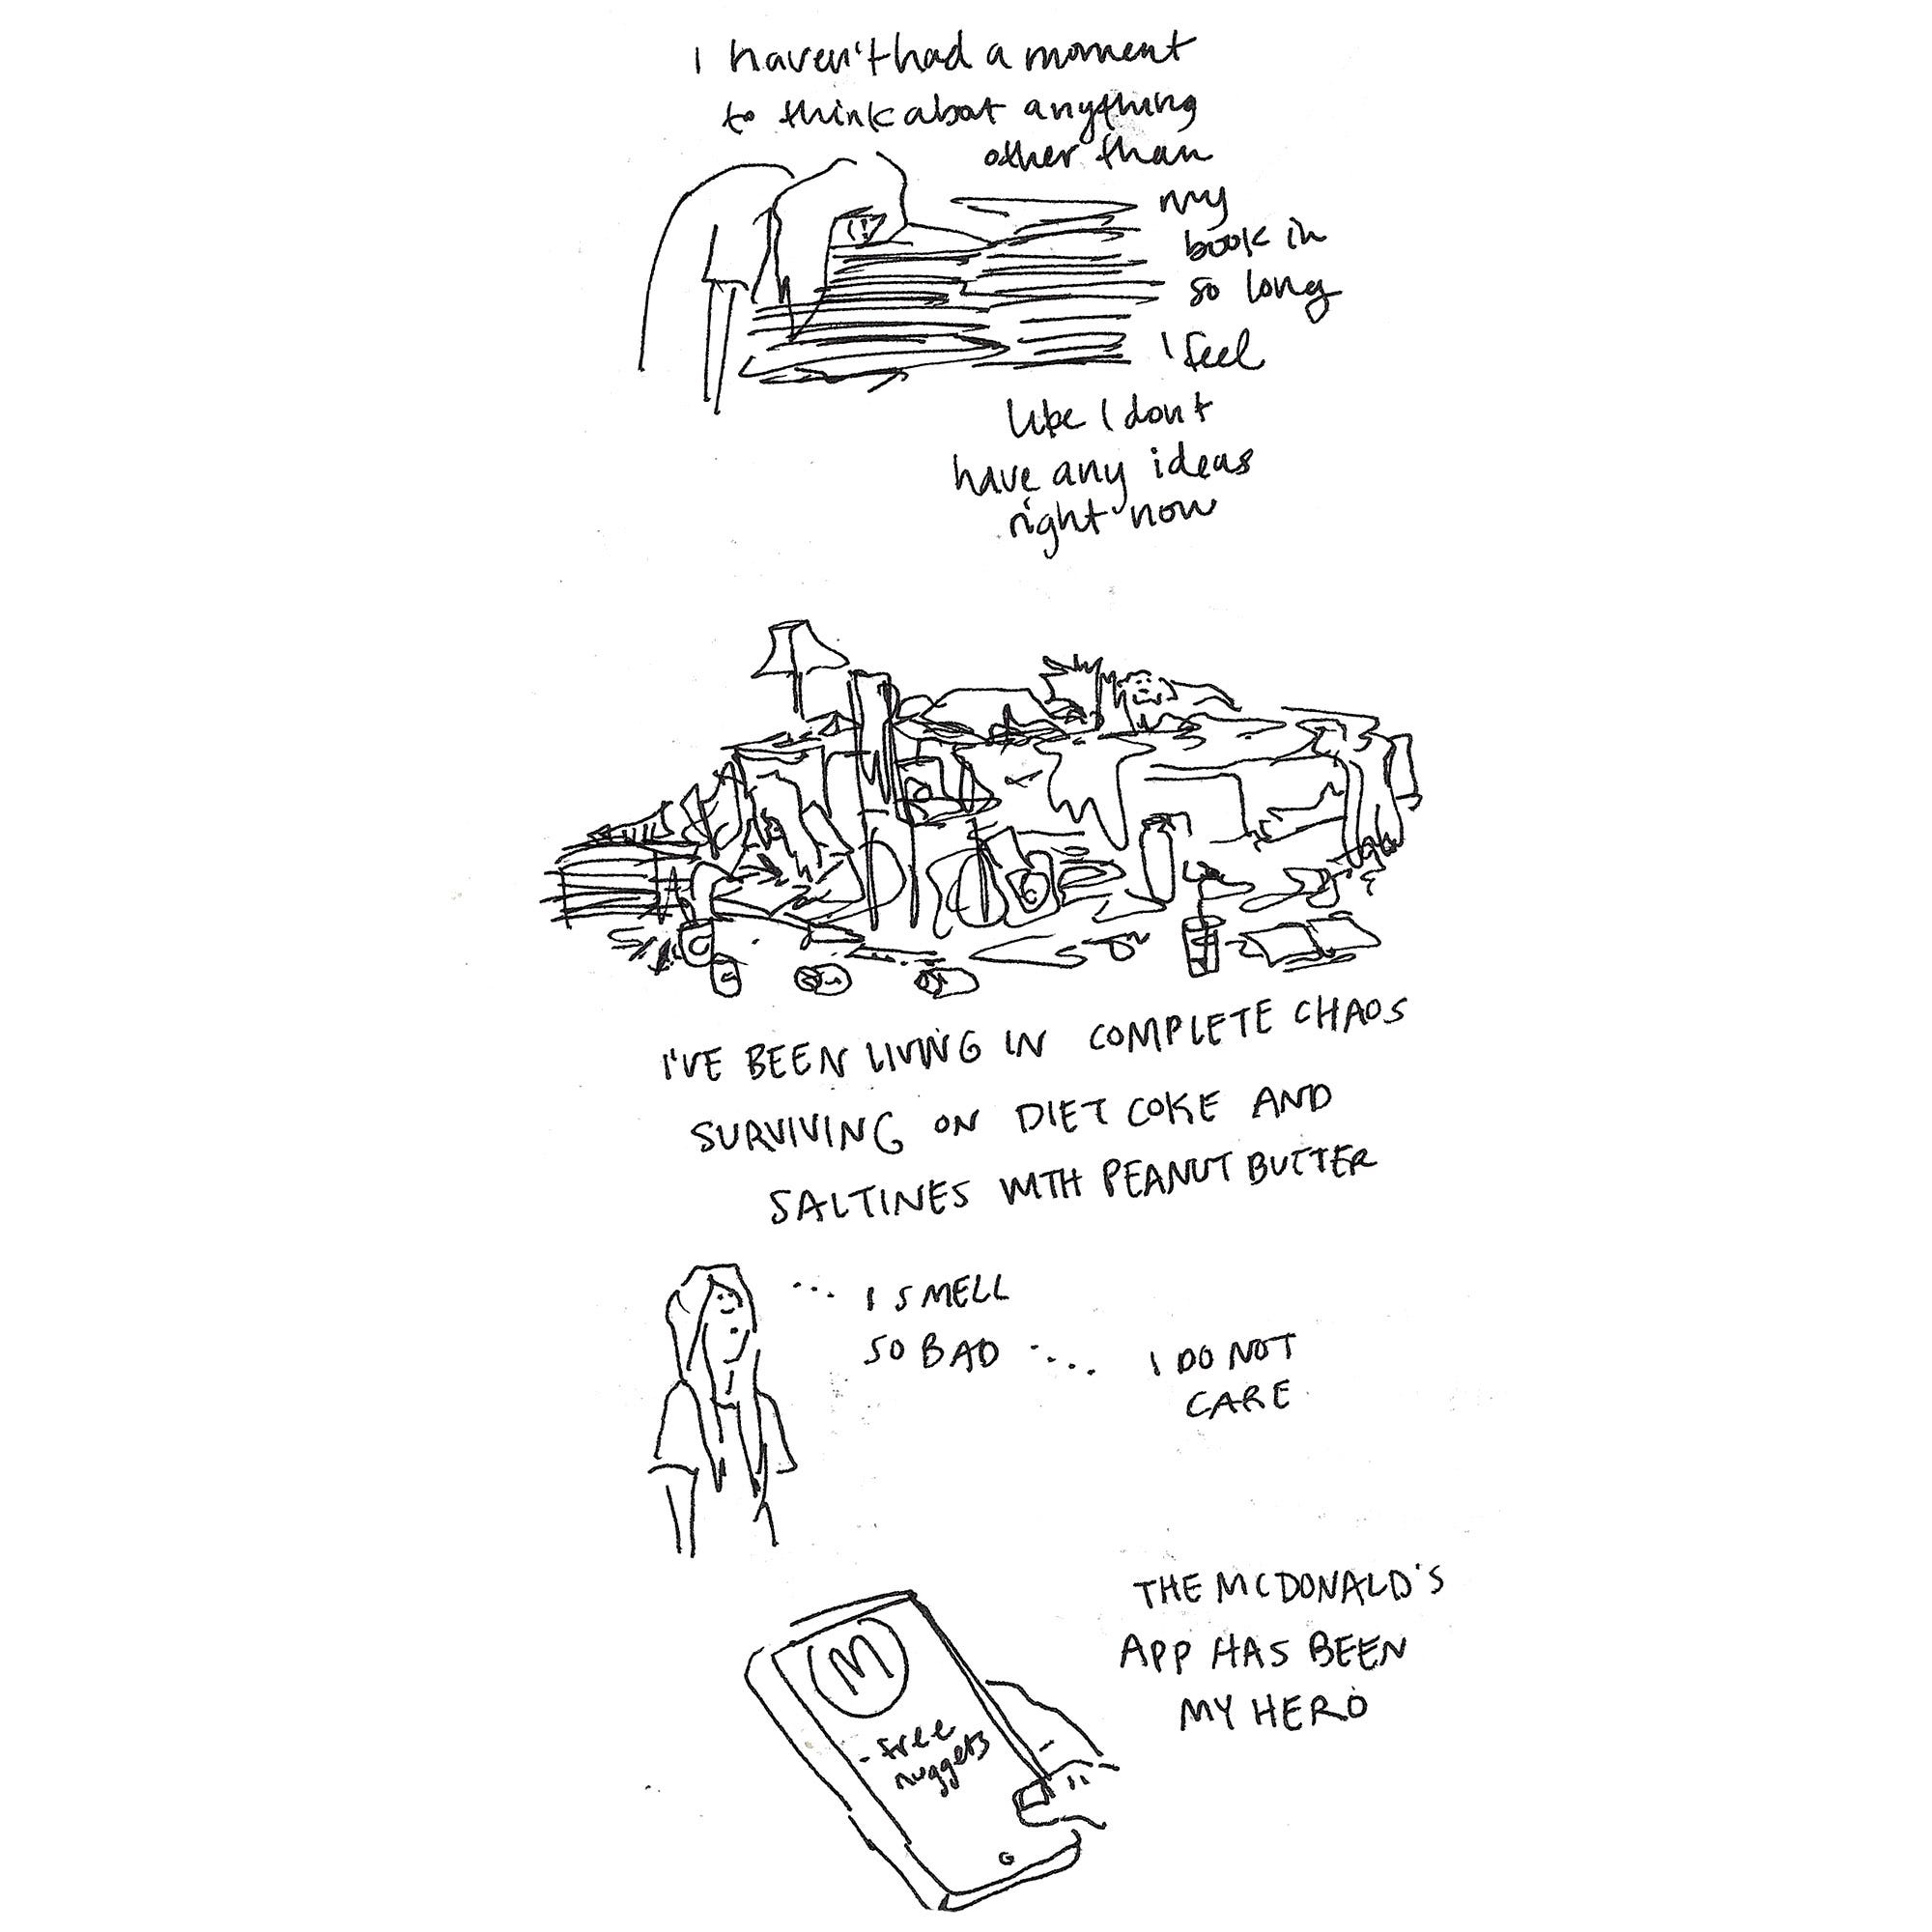 I haven't had a moment
to think about anything
other than
my
book in
so long
I feel
like I don't
have any ideas
right now
I'VE BEEN LIVING IN COMPLETE CHAOS
SURVIVING ON DIET COKE AND
SALTINES WITH PEANUT BUTTER
... I SMELL
SO BAD .... I DO NOT
CARE
THE MCDONALD'S
APP HAS BEEN
MY HERO
M
- free
nuggets